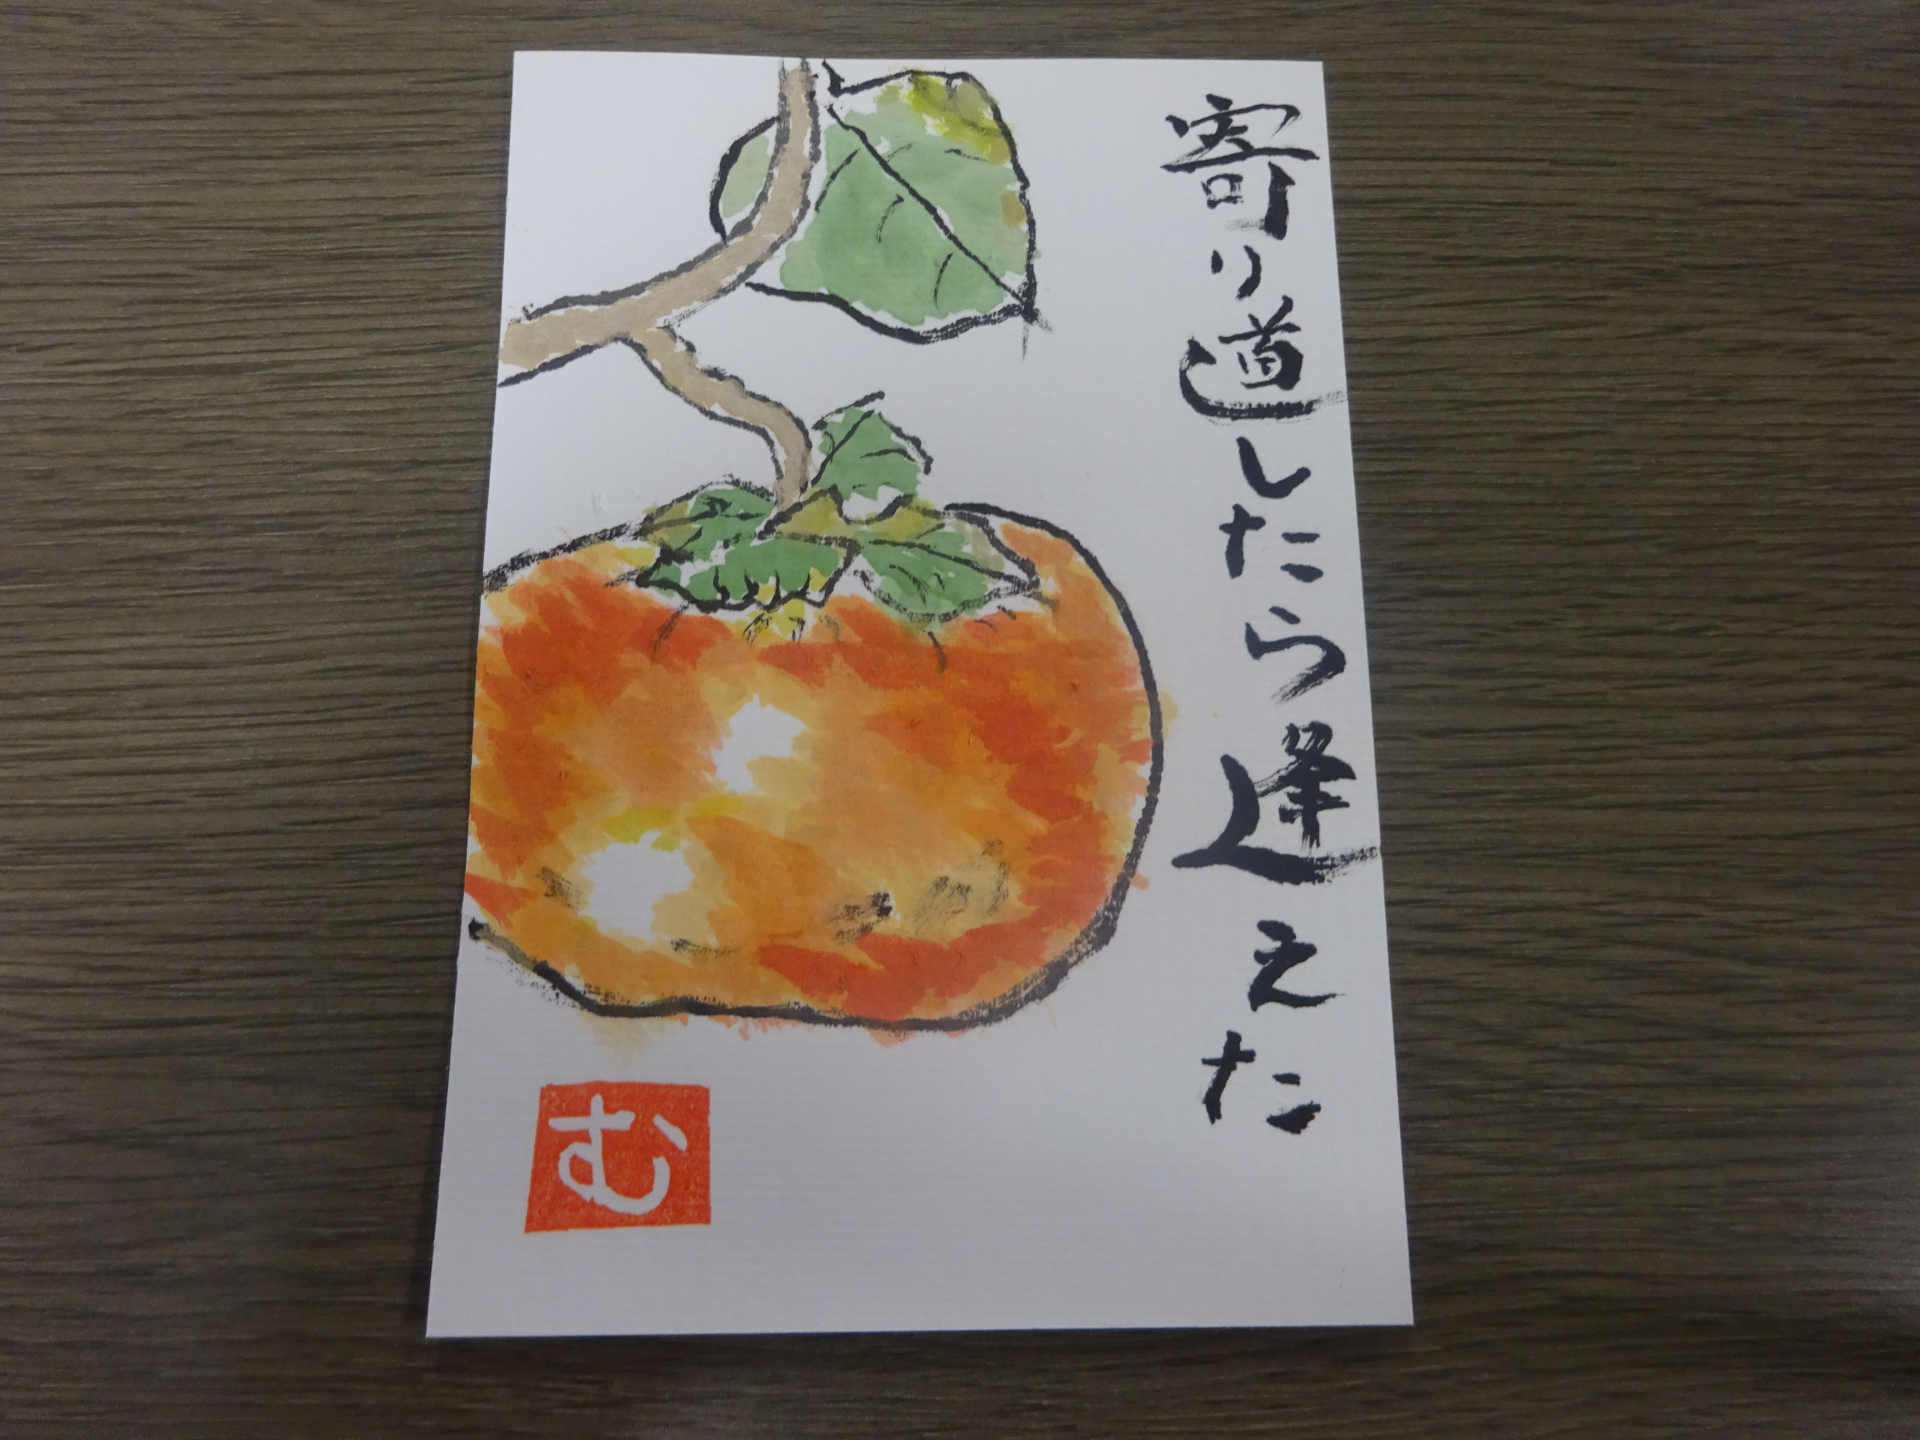 寄り道したら逢えた
む